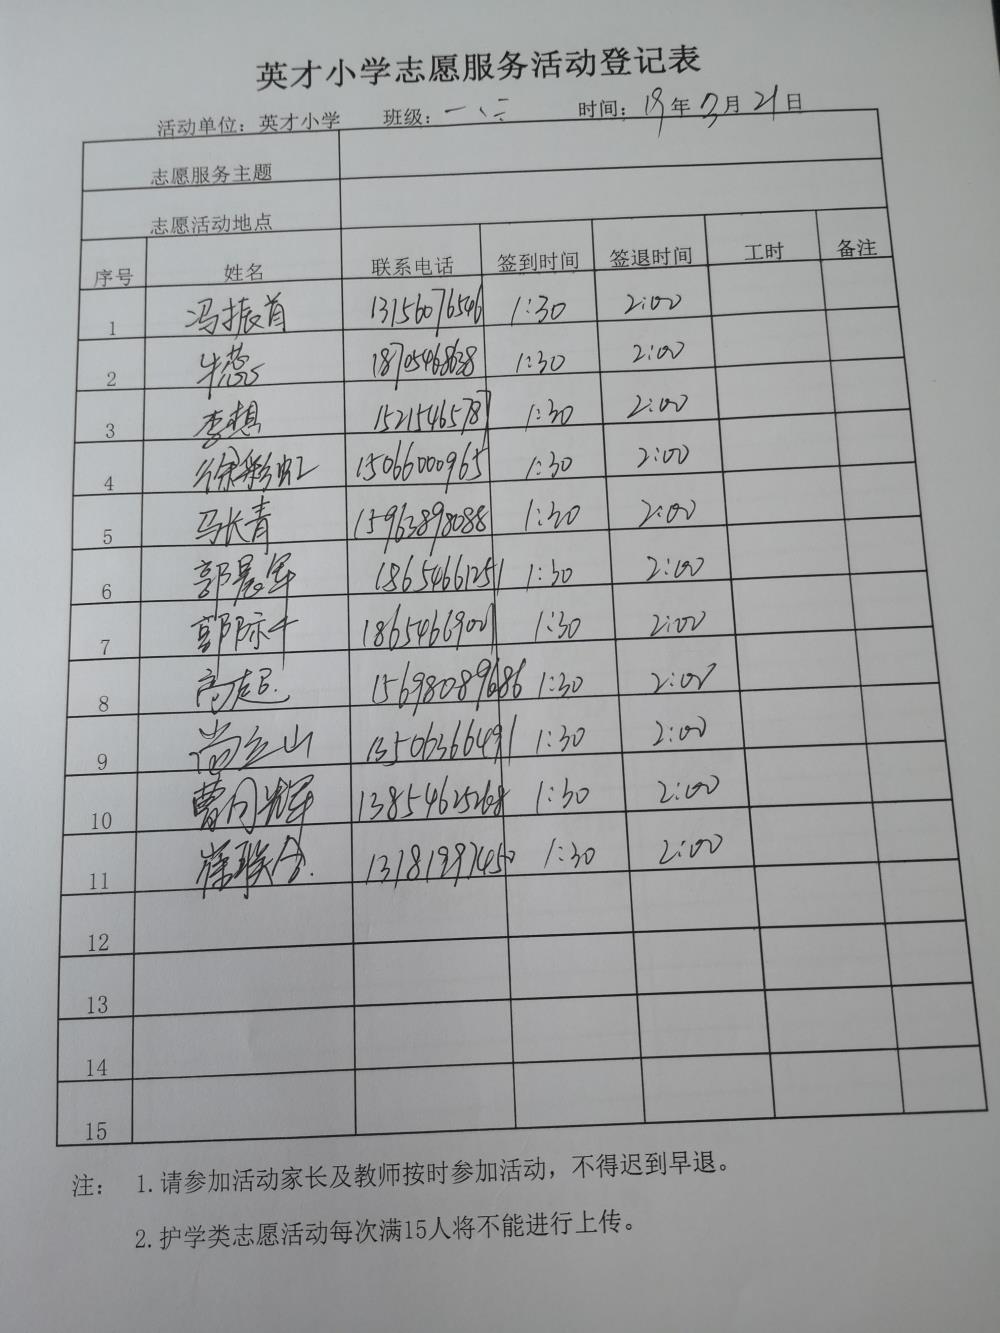 英才小学志愿服务活动登记表
活动单位：英才小学 班级：一、三 时间：19年3月21日
志愿服务主题
志愿活动地点
序号 姓名 联系电话 签到时间 签退时间 工时 备注
1 冯振首 13156076546 1:30 2:00
2 牛蕊 18705468638 1:30 2:00
3 李想 15215465787 1:30 2:00
4 徐彩虹 15066000965 1:30 2:00
5 马长青 15963898088 1:30 2:00
6 郭晨军 18654661251 1:30 2:00
7 1:30 2:00
8 高起 15698089686 1:30 2:00
9 尚立山 13506366491 1:30 2:00
10 曹同辉 13854625268 1:30 2:00
11 崔联合 13181997450 1:30 2:00
12
13
14
15
注： 1.请参加活动家长及教师按时参加活动，不得迟到早退。
2.护学类志愿活动每次满15人将不能进行上传。